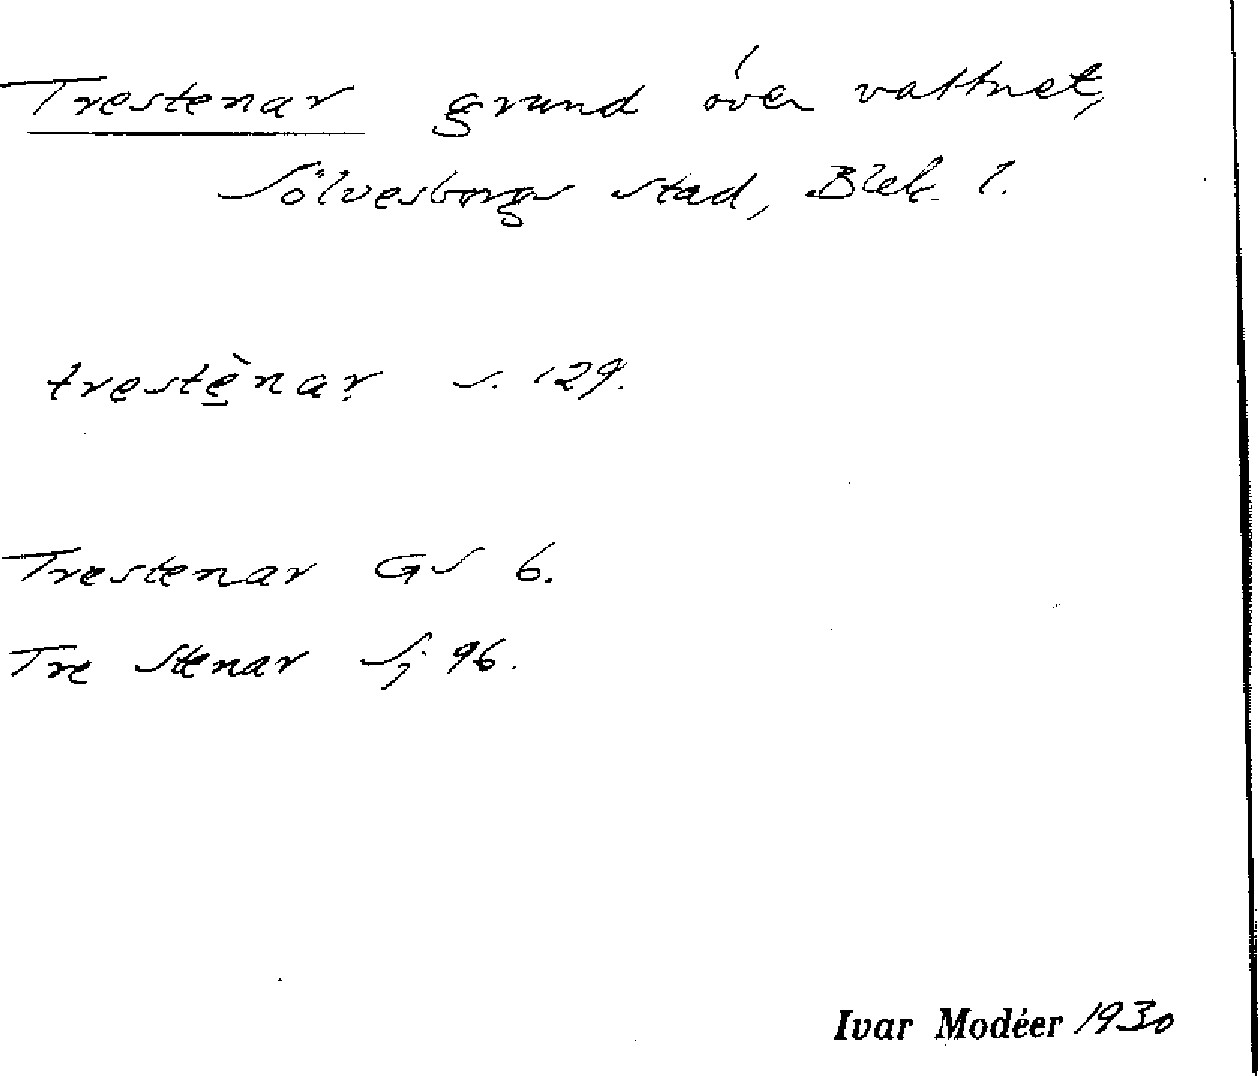 Trestenar grund över vattnet,
Sölvesborgs stad, Blek. l.
trestènar s. 129.
Trestenar GS 6.
Tre Stenar Sj. 96.
Ivar Modéer 1930